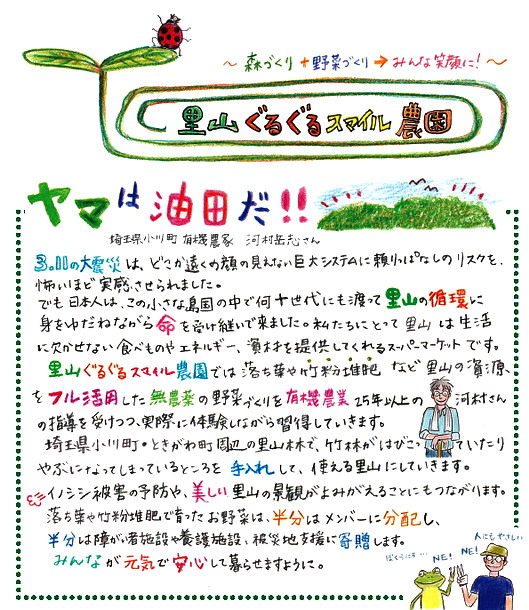 ～ 森づくり + 野菜づくり → みんな笑顔に! ～
里山ぐるぐるスマイル農園
ヤマは油田だ!!
埼玉県小川町 有機農家 河村岳志さん
3.11の大震災は、どこか遠くの顔の見えない巨大システムに頼りっぱなしのリスクを、
怖いほど実感させられました。
でも日本人は、この小さな島国の中で何十世代にも渡って里山の循環に
身をゆだねながら命を受け継いで来ました。私たちにとって里山は生活
に欠かせない食べものやエネルギー、資材を提供してくれるスーパーマーケットです。
里山ぐるぐるスマイル農園では落ち葉や竹粉堆肥など里山の資源、
をフル活用した無農薬の野菜づくりを有機農業25年以上の河村さん
の指導を受けつつ、実際に体験しながら習得していきます。
埼玉県小川町・ときがわ町周辺の里山林で、竹林がはびこっていたり
やぶになってしまっているところを手入れして、使える里山にしていきます。
イノシシ被害の予防や、美しい里山の景観がよみがえることにもつながります。
落ち葉や竹粉堆肥で育ったお野菜は、半分はメンバーに分配し、
半分は障がい者施設や養護施設、被災地支援に寄贈します。
みんなが元気で安心して暮らせますように。
ぼくらにも…
NE!
NE!
人にもやさしい